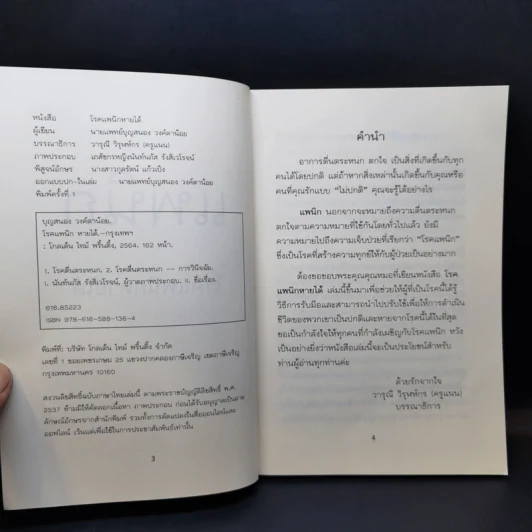 หนังสือ โรคแพนิกหายได้
ผู้เขียน นายแพทย์บุญสนอง วงค์ตาน้อย
บรรณาธิการ วารุณี วิรุฬห์กร (ครูแนน)
ภาพประกอบ เภสัชกรหญิงนันท์นภัส รังสิเวโรจน์
พิสูจน์อักษร นางสาวกุลรัตน์ แก้วเป็ง
ออกแบบปก-ในเล่ม นายแพทย์บุญสนอง วงค์ตาน้อย
พิมพ์ครั้งที่ 1
บุญสนอง วงค์ตาน้อย.
โรคแพนิก หายได้.--กรุงเทพฯ
: โกลเด้น ไทม์ พริ้นติ้ง, 2564. 162 หน้า.
1. โรคตื่นตระหนก. 2. โรคตื่นตระหนก -- การวินิจฉัย.
I. นันท์นภัส รังสิเวโรจน์, ผู้วาดภาพประกอบ. II. ชื่อเรื่อง.
616.85223
ISBN 978-616-586-136-4
พิมพ์ที่: บริษัท โกลเด้น ไทม์ พริ้นติ้ง จำกัด
เลขที่ 1 ซอยเพชรเกษม 25 แขวงปากคลองภาษีเจริญ เขตภาษีเจริญ
กรุงเทพมหานคร 10160
สงวนลิขสิทธิ์ฉบับภาษาไทยเล่มนี้ ตามพระราชบัญญัติลิขสิทธิ์ พ.ศ.
2537 ห้ามมิให้คัดลอกเนื้อหา ภาพประกอบ ก่อนได้รับอนุญาตเป็นลาย
ลักษณ์อักษรจากสำนักพิมพ์ รวมทั้งการดัดแปลงเป็นสื่อออนไลน์และ
ออฟไลน์ เว้นแต่เพื่อใช้ในการประชาสัมพันธ์เท่านั้น
3
คำนำ
อาการตื่นตระหนก ตกใจ เป็นสิ่งที่เกิดขึ้นกับทุก
คนได้โดยปกติ แต่ถ้าหากสิ่งเหล่านั้นเกิดขึ้นกับคุณหรือ
คนที่คุณรักแบบ "ไม่ปกติ" คุณจะรู้ได้อย่างไร
แพนิก นอกจากจะหมายถึงความตื่นตระหนก
ตกใจตามความหมายที่ใช้กันโดยทั่วไปแล้ว ยังมี
ความหมายไปถึงความเจ็บป่วยที่เรียกว่า "โรคแพนิก"
ซึ่งเป็นโรคที่สร้างความทุกข์ให้กับผู้ป่วยเป็นอย่างมาก
ต้องขอขอบพระคุณคุณหมอที่เขียนหนังสือ โรค
แพนิกหายได้ เล่มนี้ขึ้นมาเพื่อช่วยให้ผู้ที่เป็นโรคนี้ได้รู้
วิธีการรับมือและสามารถนำไปปรับใช้เพื่อให้การดำเนิน
ชีวิตของพวกเขาเป็นปกติและหายจากโรคนี้ได้ในที่สุด
ขอเป็นกำลังใจให้ทุกคนที่กำลังเผชิญกับโรคแพนิก หวัง
เป็นอย่างยิ่งว่าหนังสือเล่มนี้จะเป็นประโยชน์สำหรับ
ท่านผู้อ่านทุกท่านค่ะ
ด้วยรักจากใจ
วารุณี วิรุฬห์กร (ครูแนน)
บรรณาธิการ
4